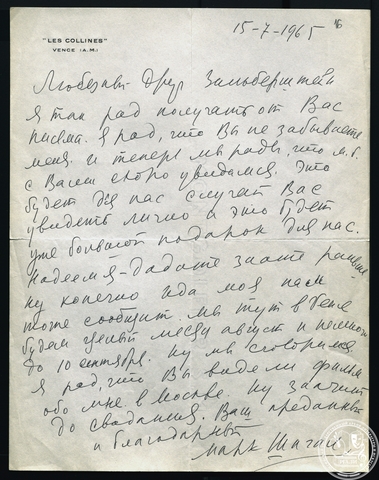 15-7-1965
"LES COLLINES"
VENCE (A.M.)
Любезный Друг Зильберштейн
я так рад получать от Вас
письма. Я рад, что Вы не забываете
меня. и теперь мы рады, что м.б.
с Вами скоро увидимся. Это
будет для нас случай Вас
увидеть лично и это будет
уже большой подарок для нас.
Надеемся - дадите знать раньше
ну конечно Ида моя нам
тоже сообщит. мы тут в Vence
будем целый месяц август и немного
до 10 сентября. Ну мы сговоримся.
Я рад, что Вы видели фильм
обо мне в Москве Ну значит
до свидания. Ваш преданный
и благодарный
Марк Шагал